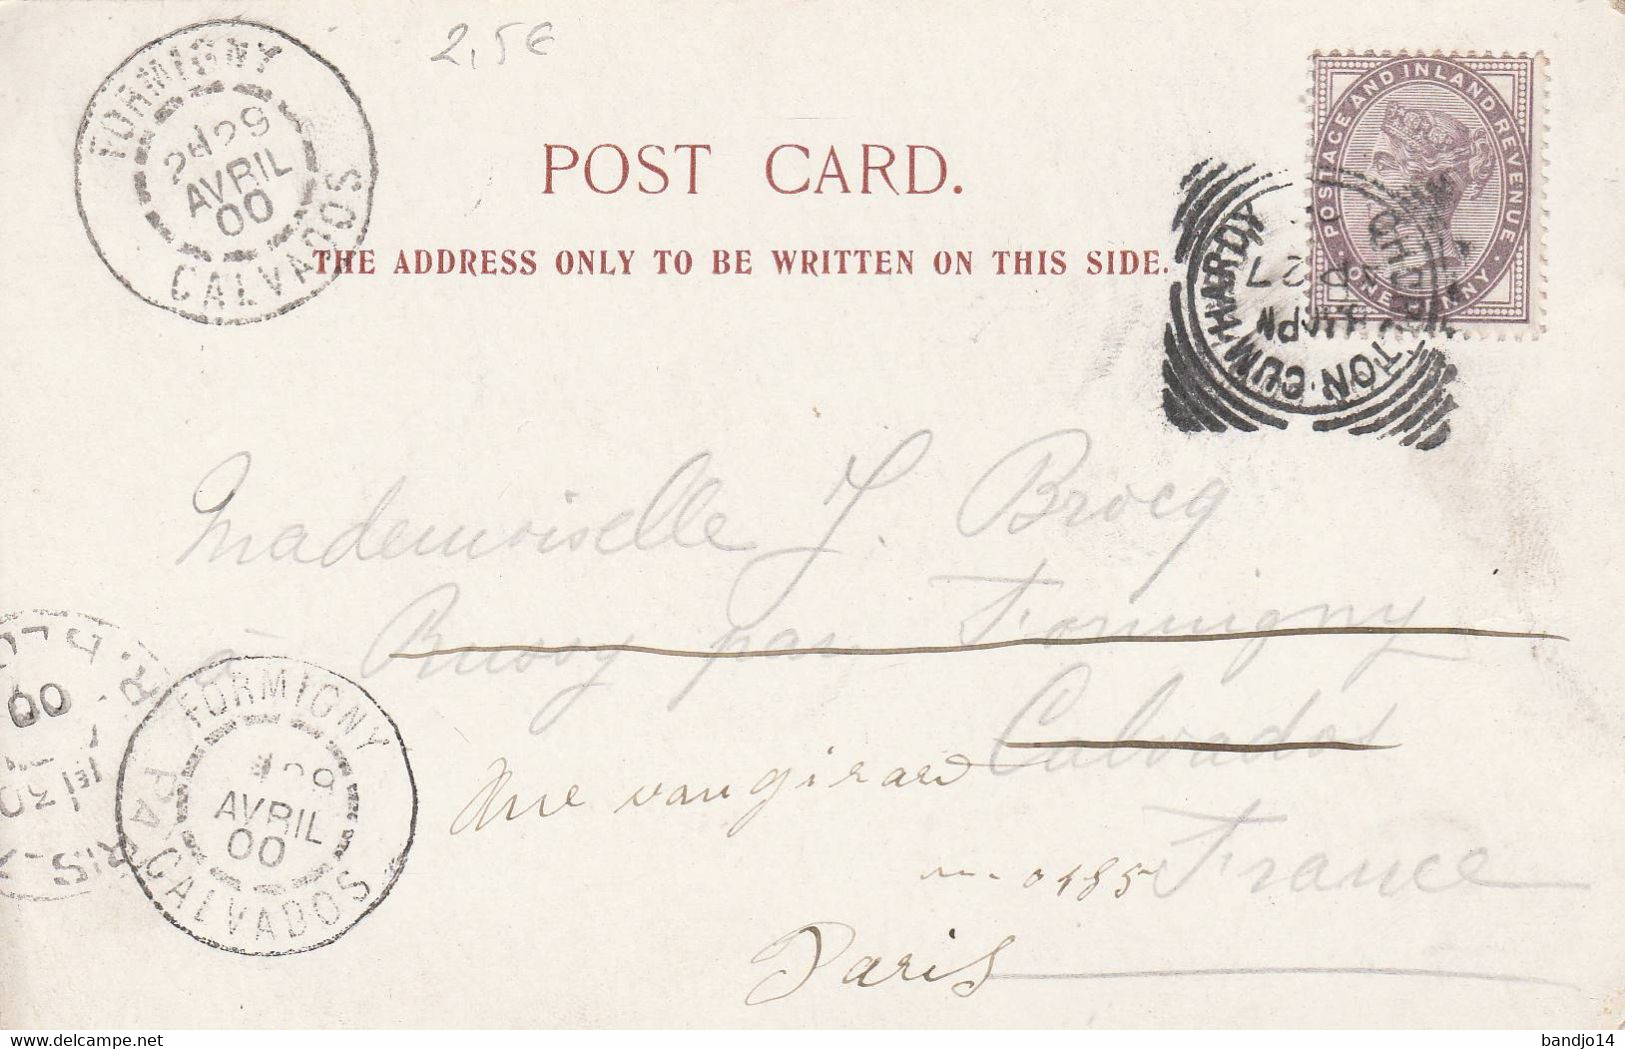 2,5€
FORMIGNY
2E 29
AVRIL
00
CALVADOS
POST CARD.
THE ADDRESS ONLY TO BE WRITTEN ON THIS SIDE.
POSTAGE AND INLAND REVENUE
ONE PENNY
TON·CUM·HARDY
27
00
Mademoiselle J. Brocq
à Russy par Formigny
Calvados
France
rue vaugirard
Paris
FORMIGNY
29
AVRIL
00
CALVADOS
PARIS
00
30
bandjo14